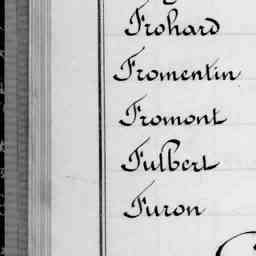 Frohard
Fromentin
Fromont
Fulbert
Furon